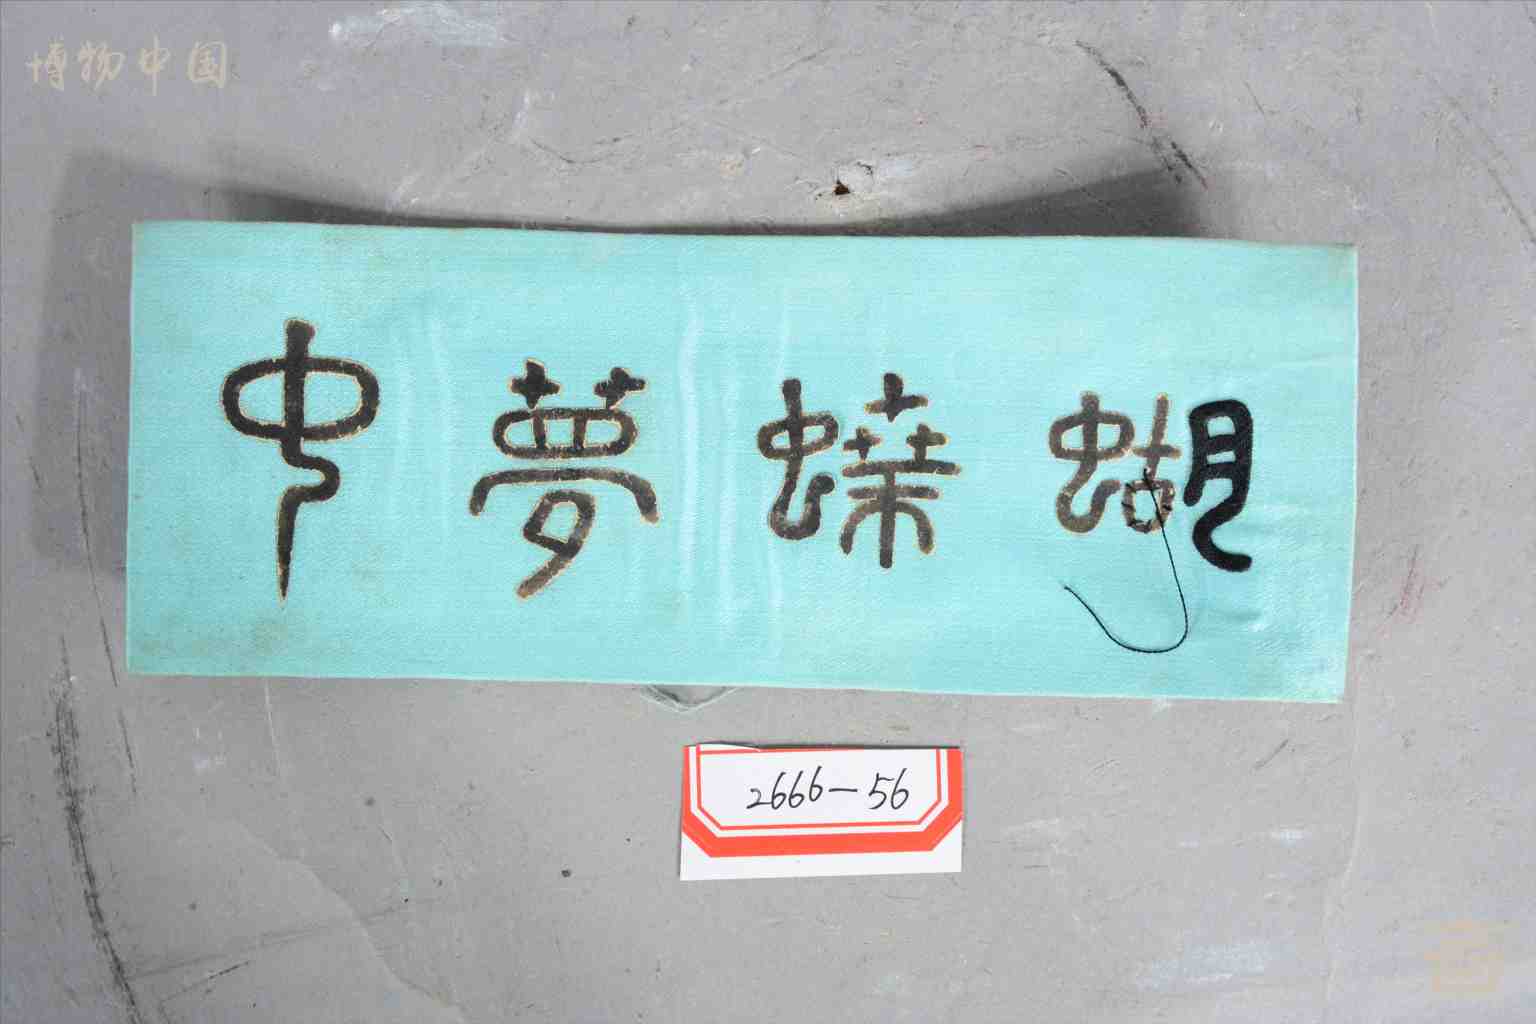 博物中国
蝴蝶夢中
2666-56